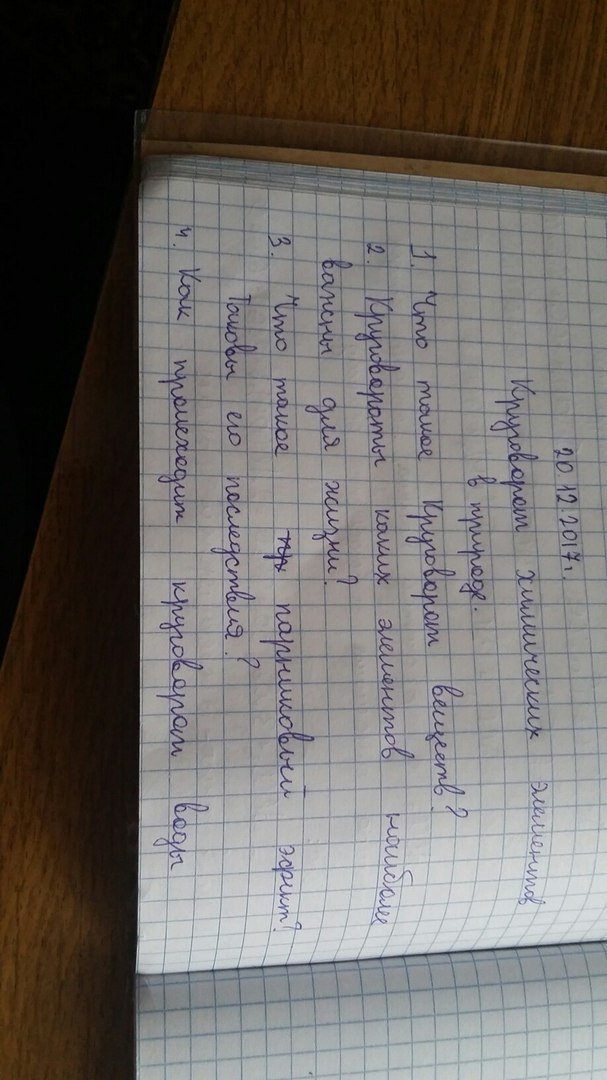 20.12.2017г.
Круговорот химических элементов
в природе.
1. Что такое Круговорот веществ?
2. Круговороты каких элементов наиболее
важны для жизни?
3. Что такое пр парниковый эфект?
Таковы его последствия?
4. Как происходит круговорот воды